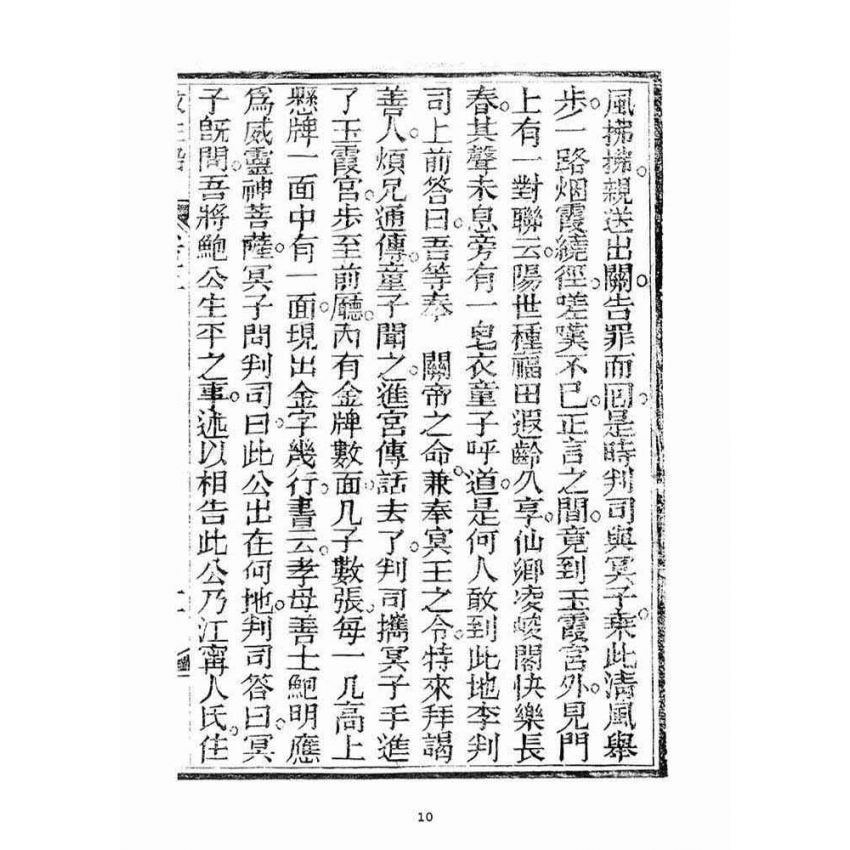 風拂拂。親送出關。告罪而回。是時判司與冥子。乘此清風舉
步。一路烟霞繞徑。嗟嘆不已。正言之間。竟到玉霞宮外。見門
上有一對聯云。陽世種福田遐齡久享。仙鄉凌峻閣快樂長
春。其聲未息。旁有一皂衣童子呼道。是何人敢到此地。李判
司上前答曰。吾等奉 關帝之命。兼奉冥王之令。特來拜謁
善人。煩兄通傳。童子聞之。進宮傳話去了。判司攜冥子手進
了玉霞宮。步至前廳。內有金牌數面。几子數張。每一几高上
懸牌一面。中有一面。現出金字幾行。書云。孝母善士鮑明應
爲威靈神菩薩。冥子問判司曰。此公出在何地。判司答曰。冥
子既問。吾將鮑公生平之事。述以相告。此公乃江寧人氏。住
10